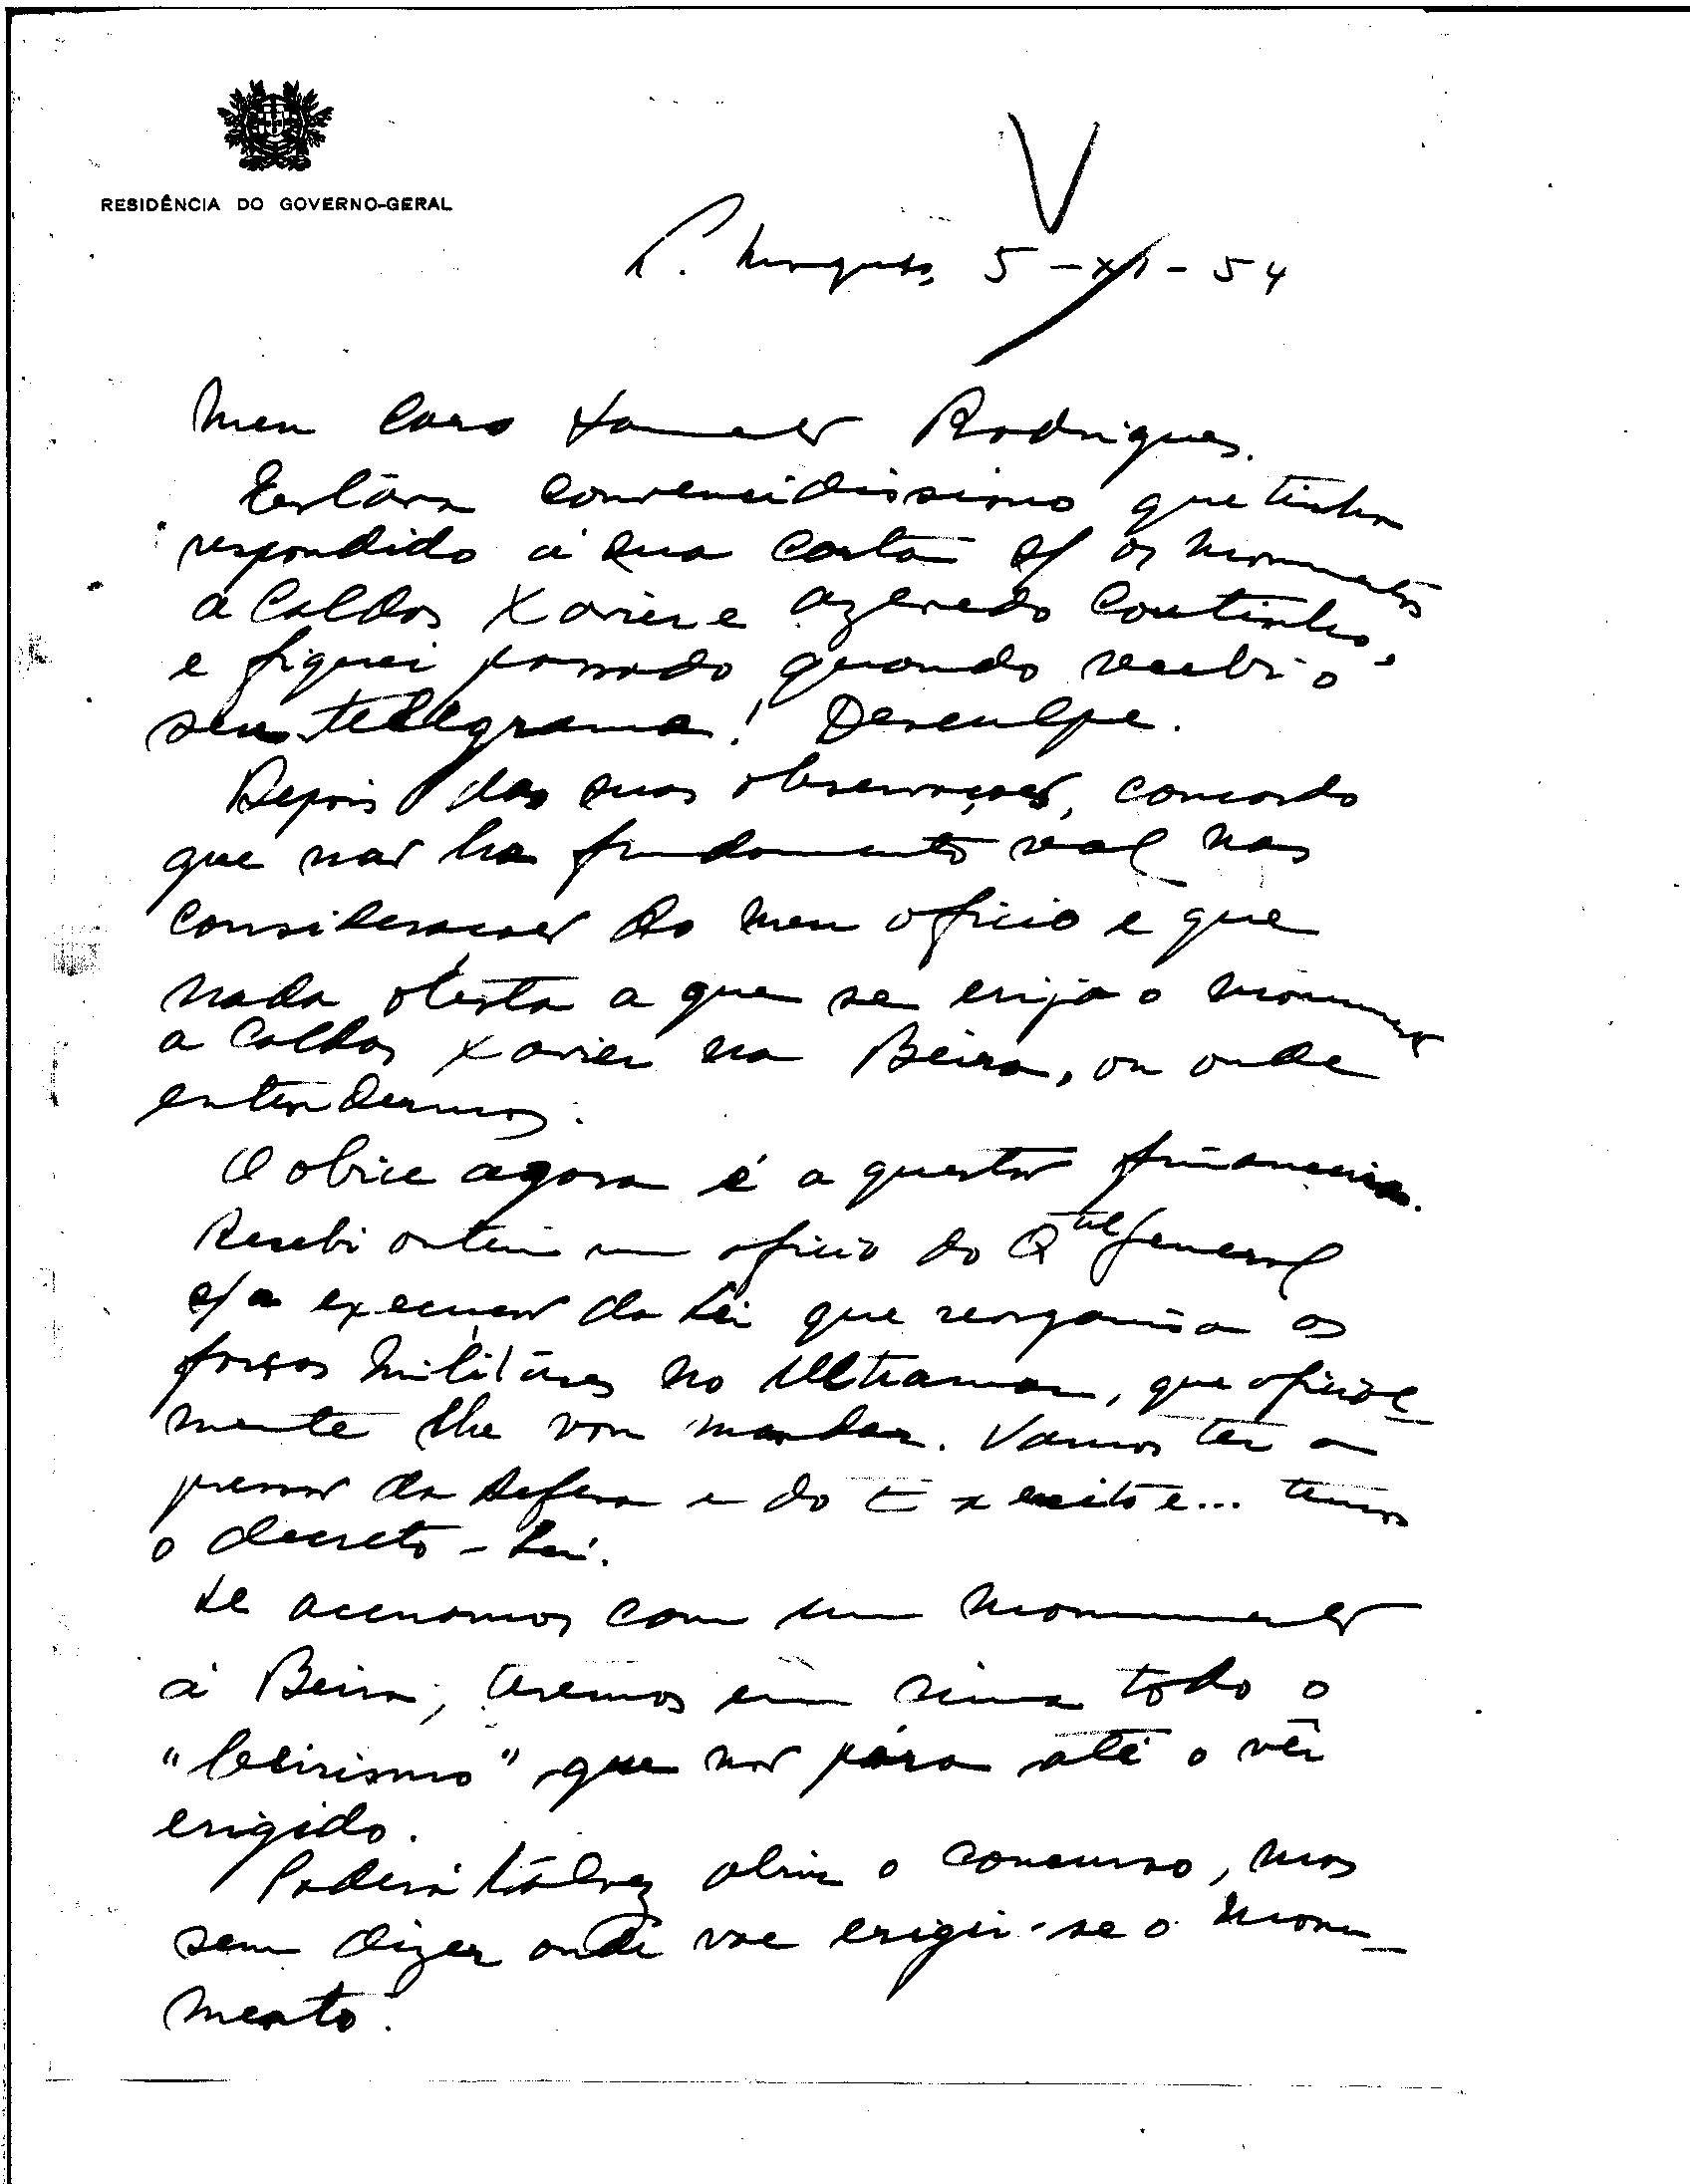 RESIDÊNCIA DO GOVERNO-GERAL
L. Marques, 5-XI-54
Meu Caro Rodrigues.
Estava convencidissimo que tinha
respondido à sua carta s/ os monumentos
a Caldas Xavier e Azevedo Coutinho,
e fiquei passado quando recebi o
seu telegrama! Desculpe.
Depois das suas observações, concordo
que não ha fundamento real nas
considerações do meu oficio e que
nada obsta a que se erija o monumento
a Caldas Xavier na Beira, ou onde
entendermos.
O obice agora é a questão financeira.
Recebi ontem um oficio do Qtel General
s/ a execução da Lei que reorganisa as
forças militares no Ultramar, que oficial-
mente lhe vou mandar. Vamos ter a
pressão da Defesa e do Exercito e... temos
o decreto-Lei.
Se acenamos com um monumento
à Beira, teremos em cima todo o
"beirismo" que não pára até o vêr
erigido.
Poderá talvez abrir o concurso, mas
sem dizer onde vae erigir-se o monu-
mento.